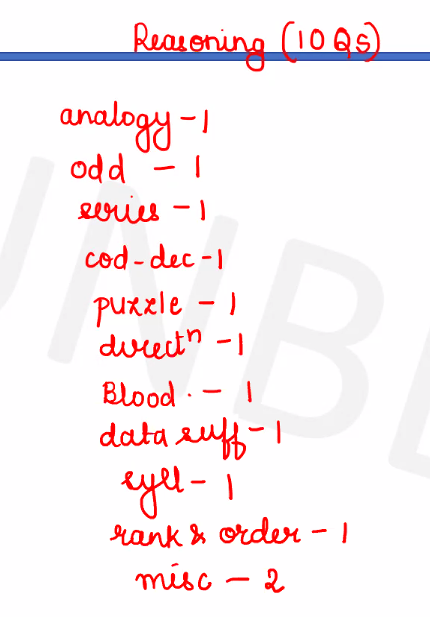 Reasoning (10 Qs)
analogy - 1
odd - 1
series - 1
cod-dec - 1
puzzle - 1
directⁿ - 1
Blood. - 1
data suff - 1
syll - 1
rank & order - 1
misc - 2